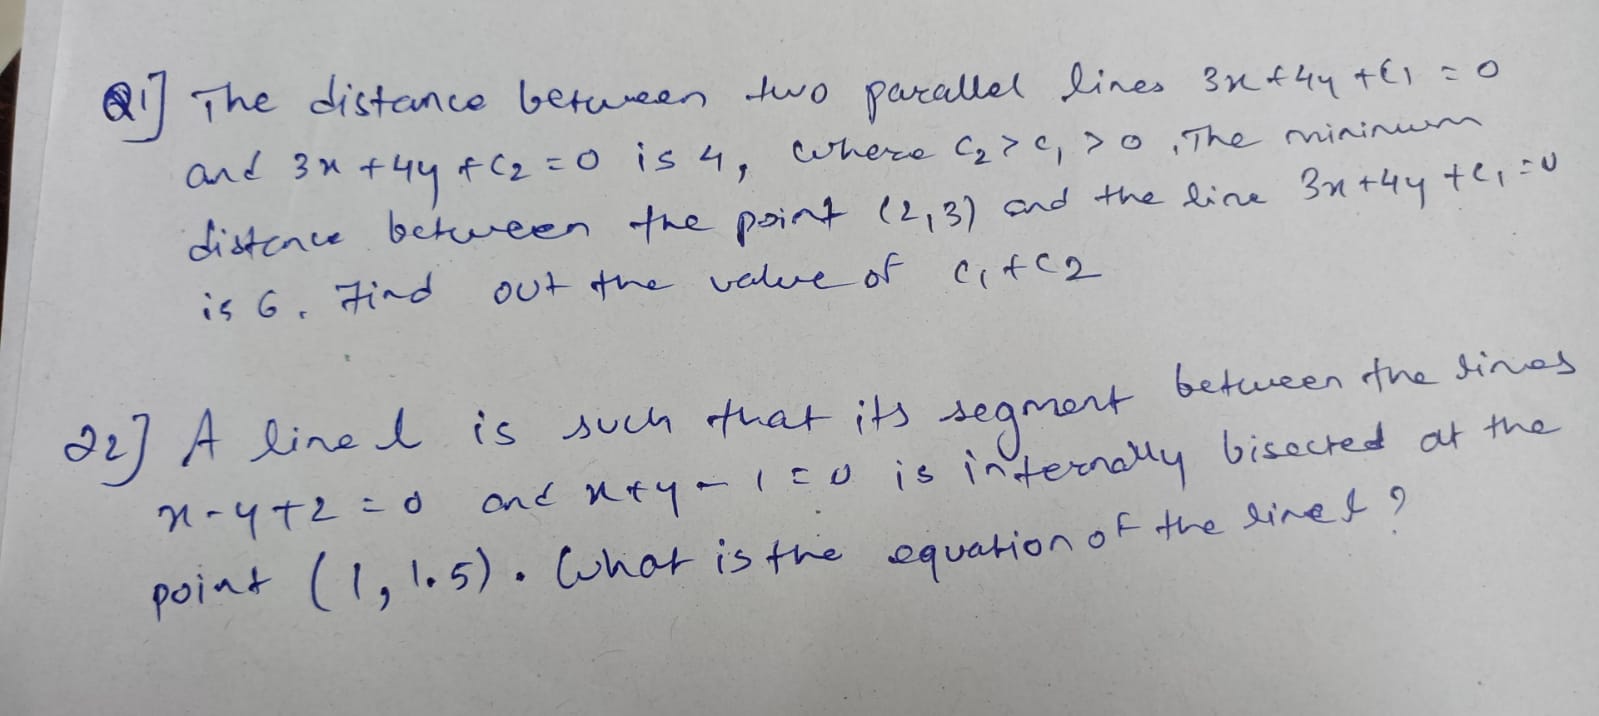 Q1] The distance between two parallel lines 3x+4y+C1=0
and 3x+4y+C2=0 is 4, where C2>C1>0, The minimum
distance between the point (2,3) and the line 3x+4y+C1=0
is 6. Find out the value of C1+C2
Q2] A line l is such that its segment between the lines
x-y+2=0 and x+y-1=0 is internally bisected at the
point (1, 1.5). What is the equation of the line l?